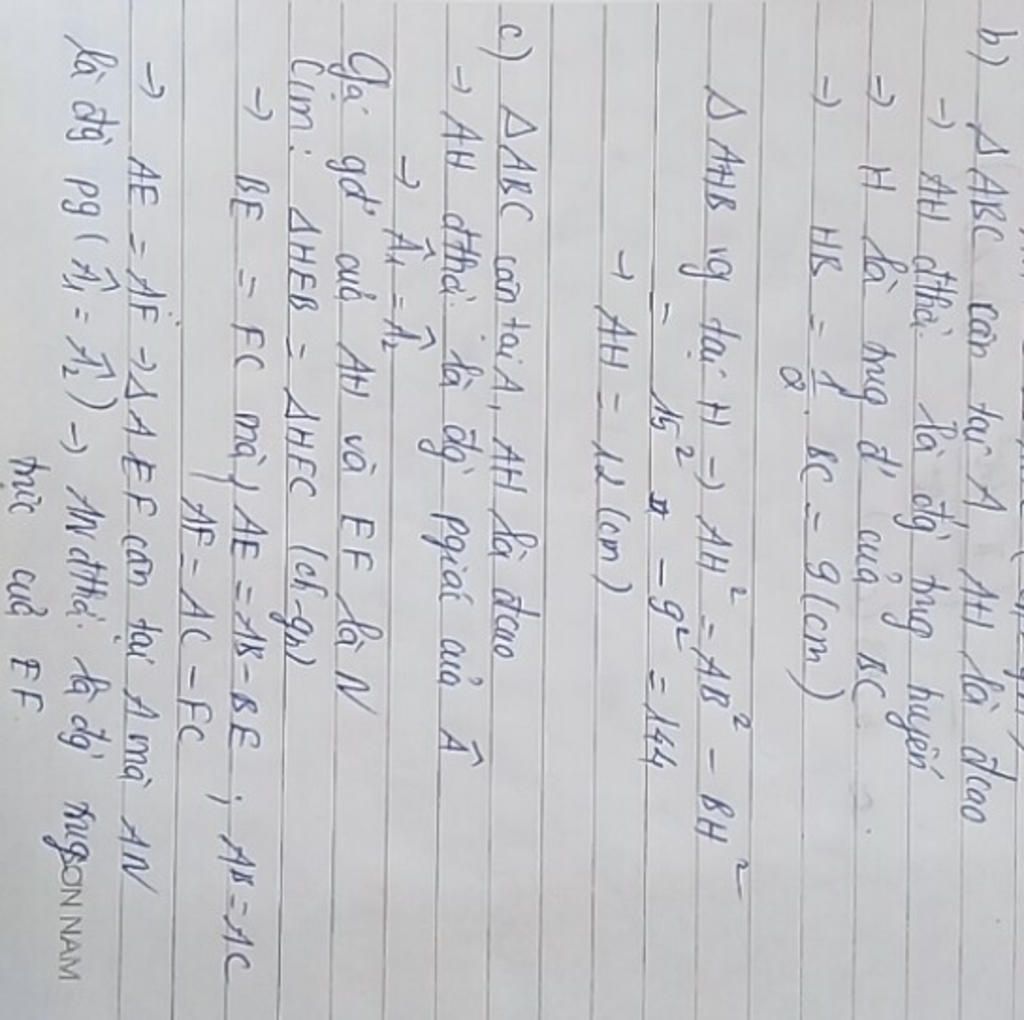 b) Δ ABC cân tại A, AH là đcao
→ AH đthời là đg trug tuyến
→ H là trug đ' của BC
→ HB = 1/2 . BC = 9 (cm)
Δ AHB vg tại H → AH² = AB² - BH²
= 15² - 9² = 144
→ AH = 12 (cm)
c) Δ ABC cân tại A, AH là đcao
→ AH đthời là đg pgiác của Â
→ Â1 = Â2
Gọi gđ' của AH và EF là N
C/m: ΔHEB = ΔHFC (ch-gn)
→ BE = FC mà AE = AB - BE ; AB = AC
AF = AC - FC
→ AE = AF → Δ AEF cân tại A mà AN
là đg pg (Â1 = Â2) → AN đthời là đg trug
trực của EF
SƠN NAM